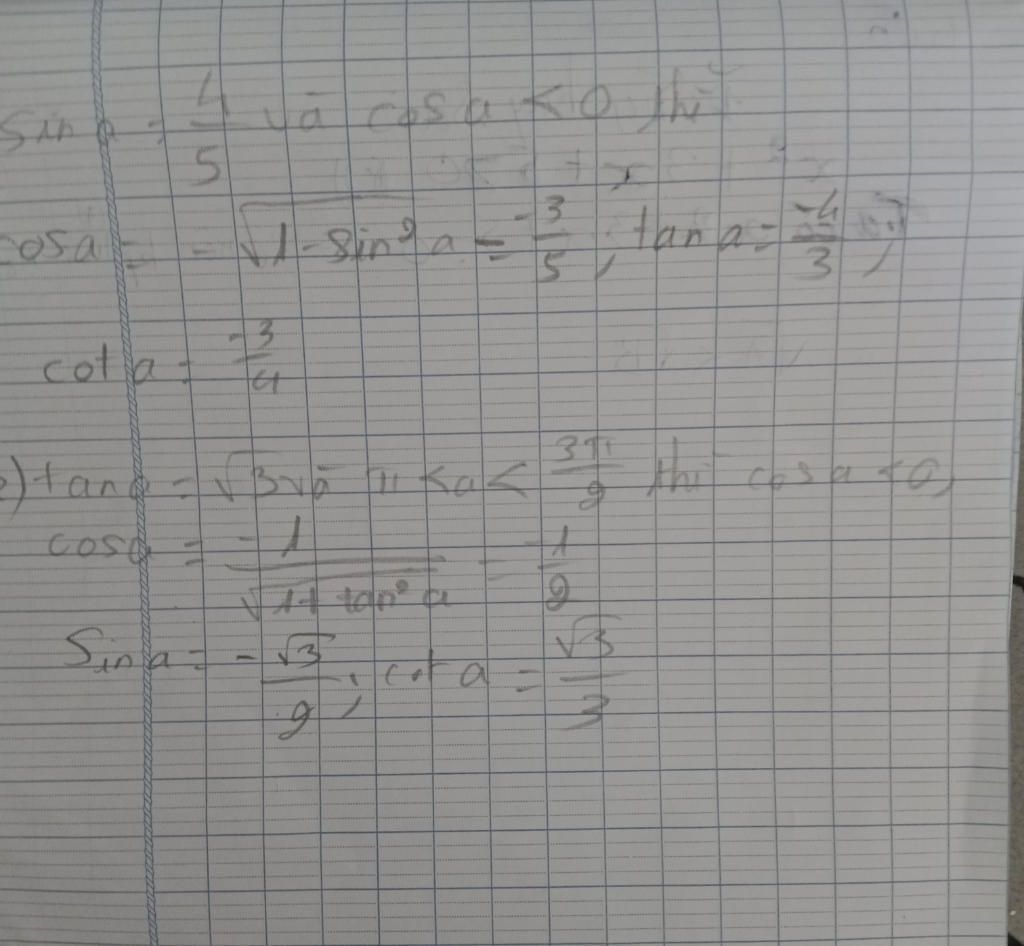 sin a = 4/5 và cos a < 0 thì
cos a = -√(1 - sin² a) = -3/5, tan a = -4/3,
cot a = -3/4
) tan a = √3 và π < a < 3π/2 thì cos a < 0,
cos a = -1/√(1 + tan² a) = -1/2
Sin a = -√3/2; cot a = √3/3